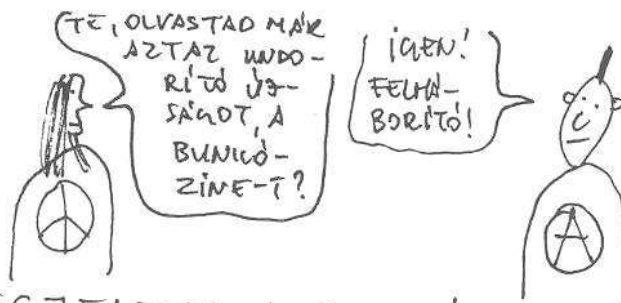 TE, OLVASTAD MÁR
AZT AZ UNDO-
RÍTÓ ÚJ-
SÁGOT, A
BUNKÓ-
ZINE-T?
IGEN!
FELHÁ-
BORÍTÓ!
A